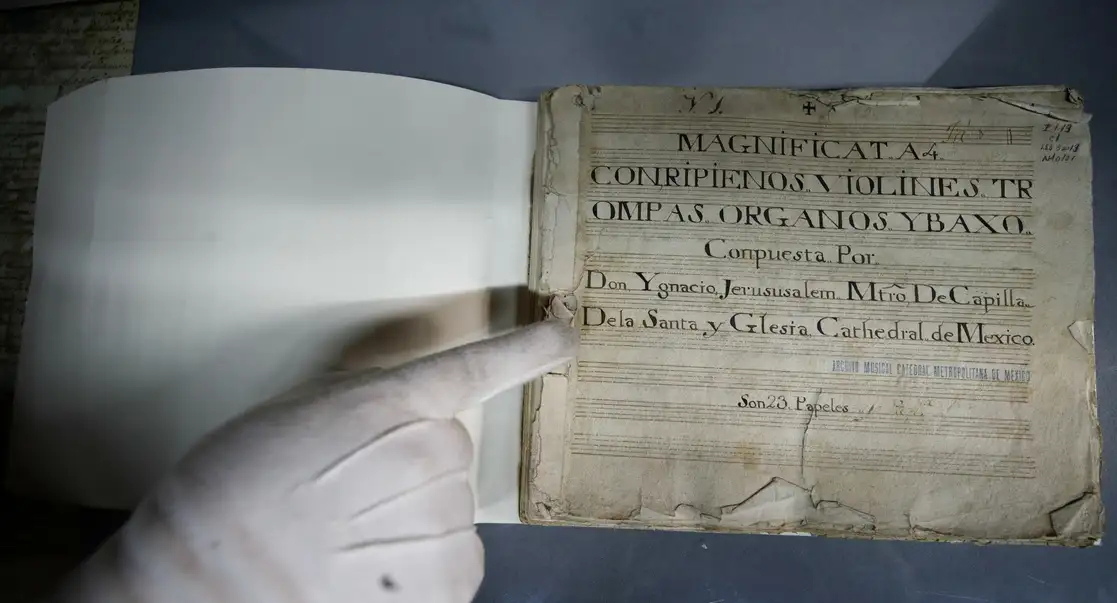 MAGNIFICAT. A4.
CON.RIPIENOS. VIOLINES. TR
OMPAS. ORGANOS. YBAXO.
Conpuesta. Por.
Don. Ygnacio. Jerususalem. Mtrô. De Capilla.
Dela Santa. y Glesia. Cathedral. de Mexico.
ARCHIVO MUSICAL CATEDRAL METROPOLITANA DE MEXICO
Son 23. Papeles